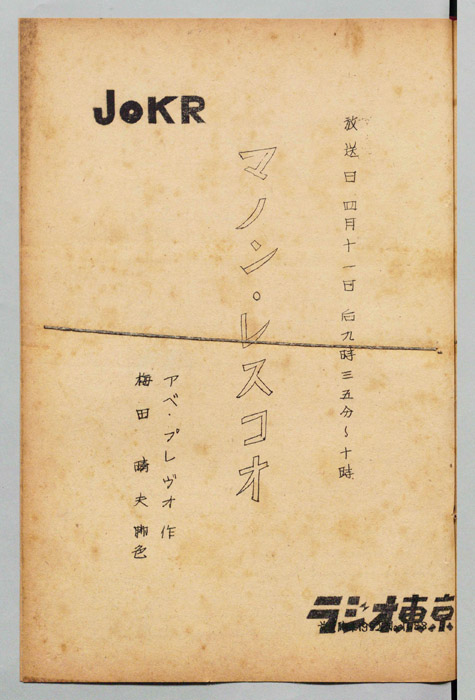 JOKR
放送日 四月十一日 后九時三五分～十時
マノン・レスコオ
アベ・プレヴオ 作
梅田 晴夫 脚色
ラジオ東京